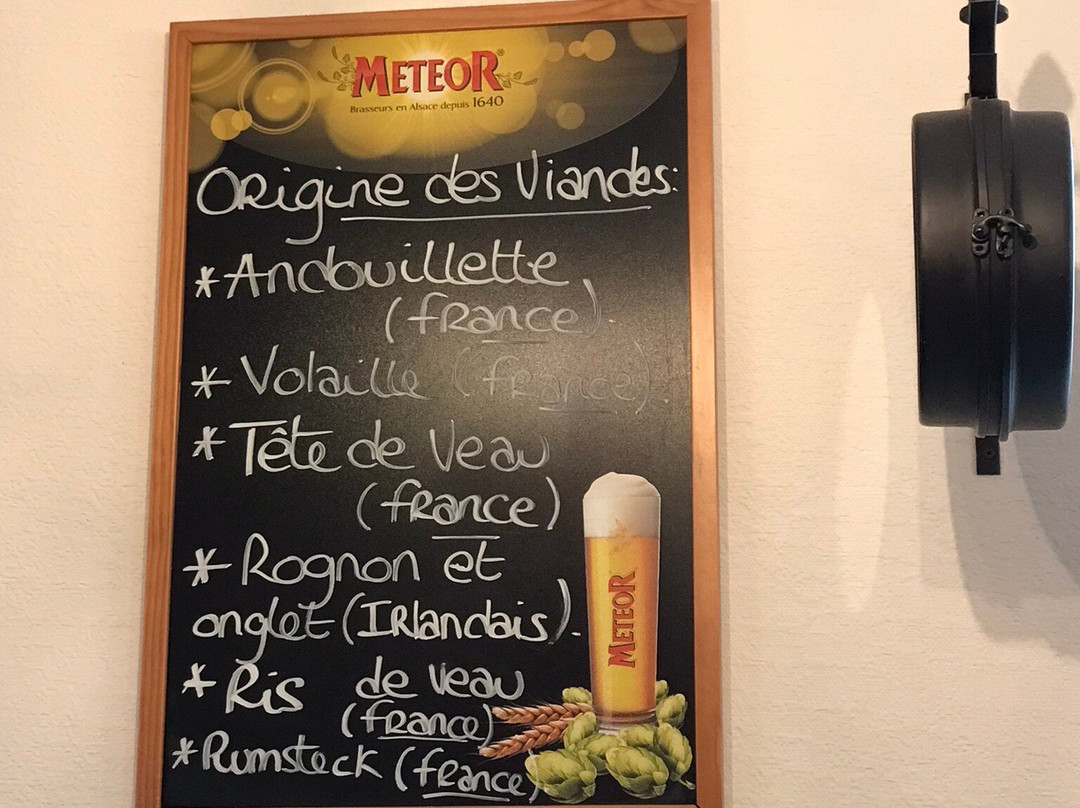 METEOR
Brasseurs en Alsace depuis 1640
Origine des Viandes:
* Andouillette
(france).
* Volaille (france).
* Tête de Veau
(france)
* Rognon et
onglet (IRlandais).
* Ris de veau
(france)
* Rumsteck (france)
METEOR